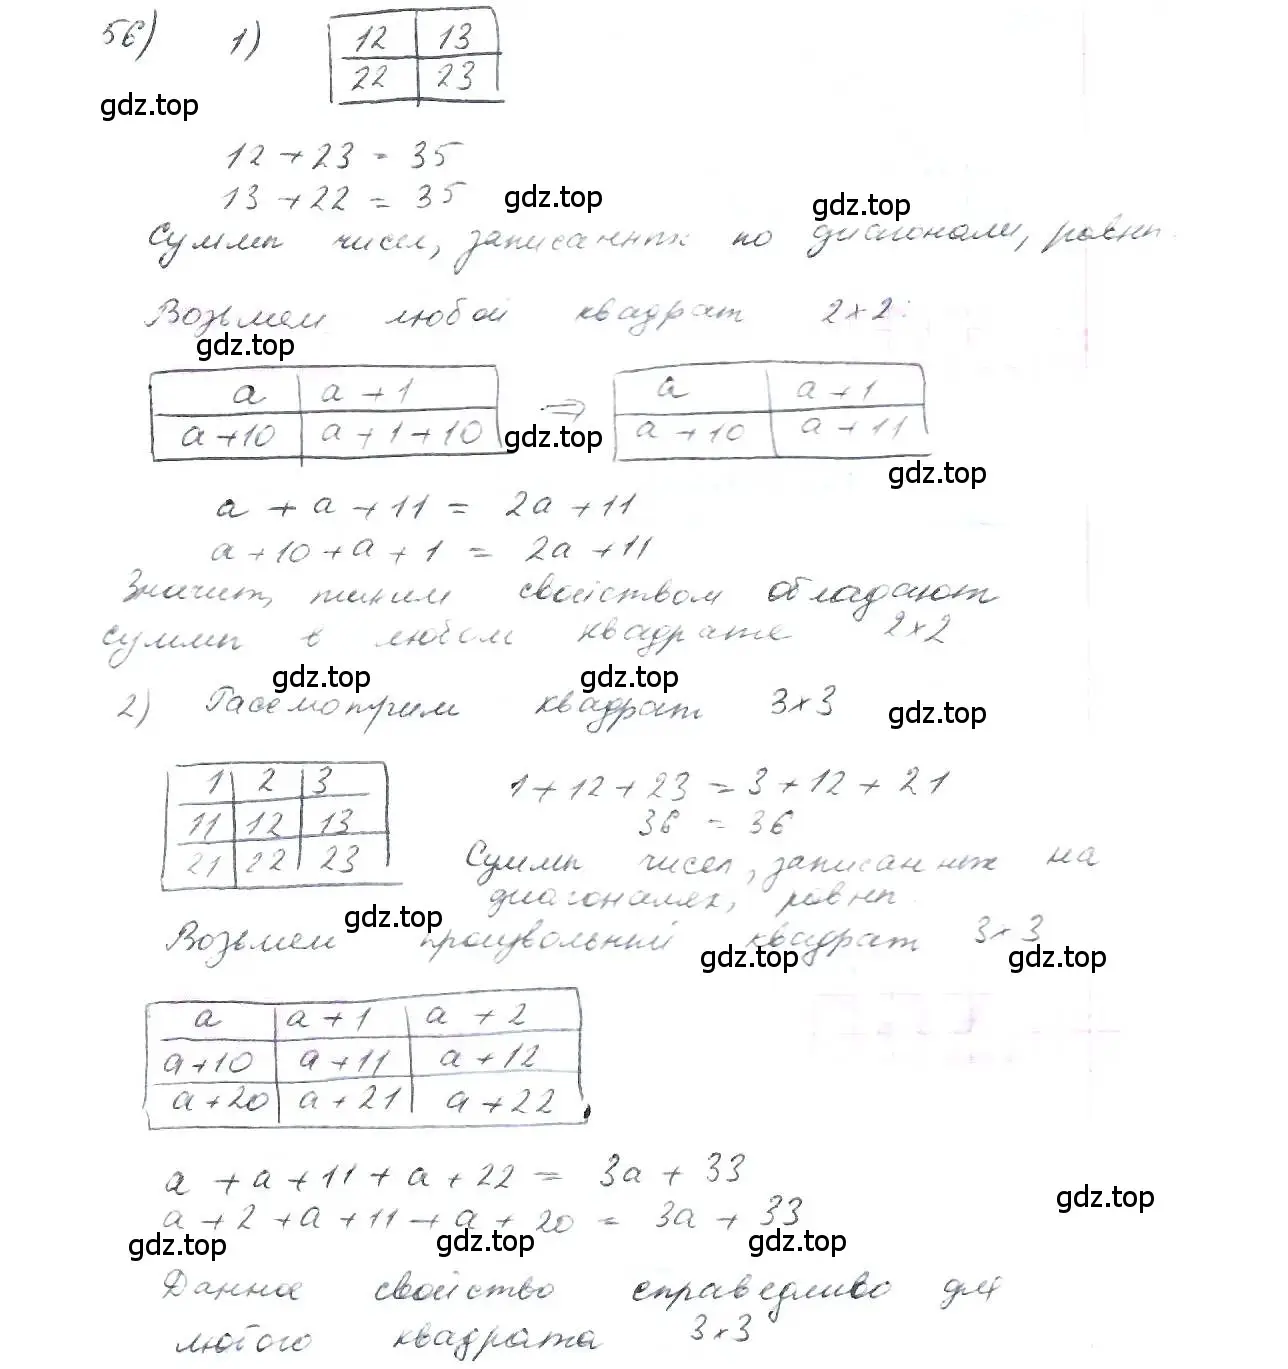 56) 1) 12 13
22 23
gdz.top
12 + 23 = 35
13 + 22 = 35 gdz.top gdz.top
Суммы чисел, записанных по диагонали, равны.
Возьмем любой квадрат 2×2:
gdz.top
a a + 1 ⇒ a a + 1
a + 10 a + 1 + 10 gdz.top a + 10 a + 11
gdz.top
a + a + 11 = 2a + 11
a + 10 + a + 1 = 2a + 11
Значит, таким свойством обладают
суммы в любом квадрате 2×2
gdz.top gdz.top
2) Рассмотрим квадрат 3×3 gdz.top
1 2 3
11 12 13
21 22 23
1 + 12 + 23 = 3 + 12 + 21
36 = 36
Суммы чисел, записанных на
диагоналях, равны.
gdz.top
Возьмем произвольный квадрат 3×3
gdz.top gdz.top
a a + 1 a + 2
a + 10 a + 11 a + 12
a + 20 a + 21 a + 22
a + a + 11 + a + 22 = 3a + 33
gdz.top
a + 2 + a + 11 + a + 20 = 3a + 33
gdz.top gdz.top gdz.top
Данное свойство справедливо для
любого квадрата 3×3